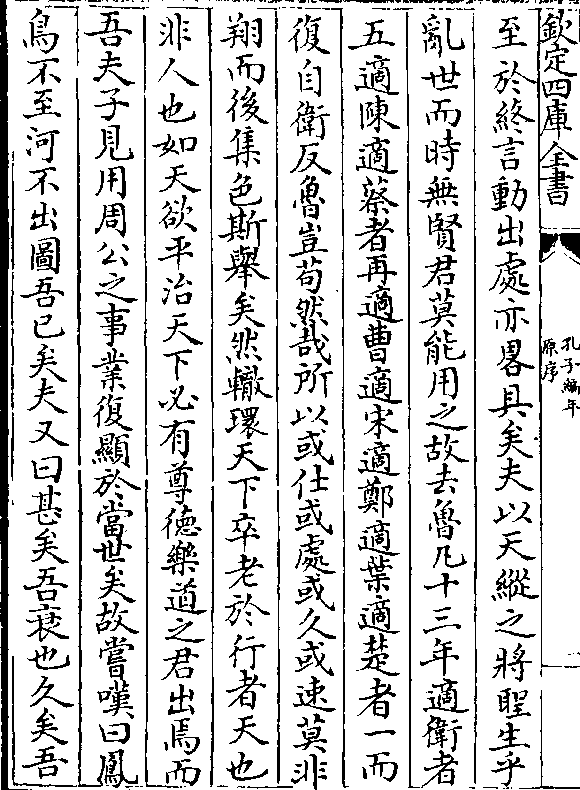 欽定四庫全書
孔子編年
原序
至於終言動出處亦畧具矣夫以天縱之將聖生乎
亂世而時無賢君莫能用之故去魯凡十三年適衛者
五適陳適蔡者再適曹適宋適鄭適葉適楚者一而
復自衛反魯豈苟然哉所以或仕或處或久或速莫非
翔而後集色斯舉矣然轍環天下卒老於行者天也
非人也如天欲平治天下必有尊德樂道之君出焉而
吾夫子見用周公之事業復顯於當世矣故嘗嘆曰鳳
鳥不至河不出圖吾已矣夫又曰甚矣吾衰也久矣吾